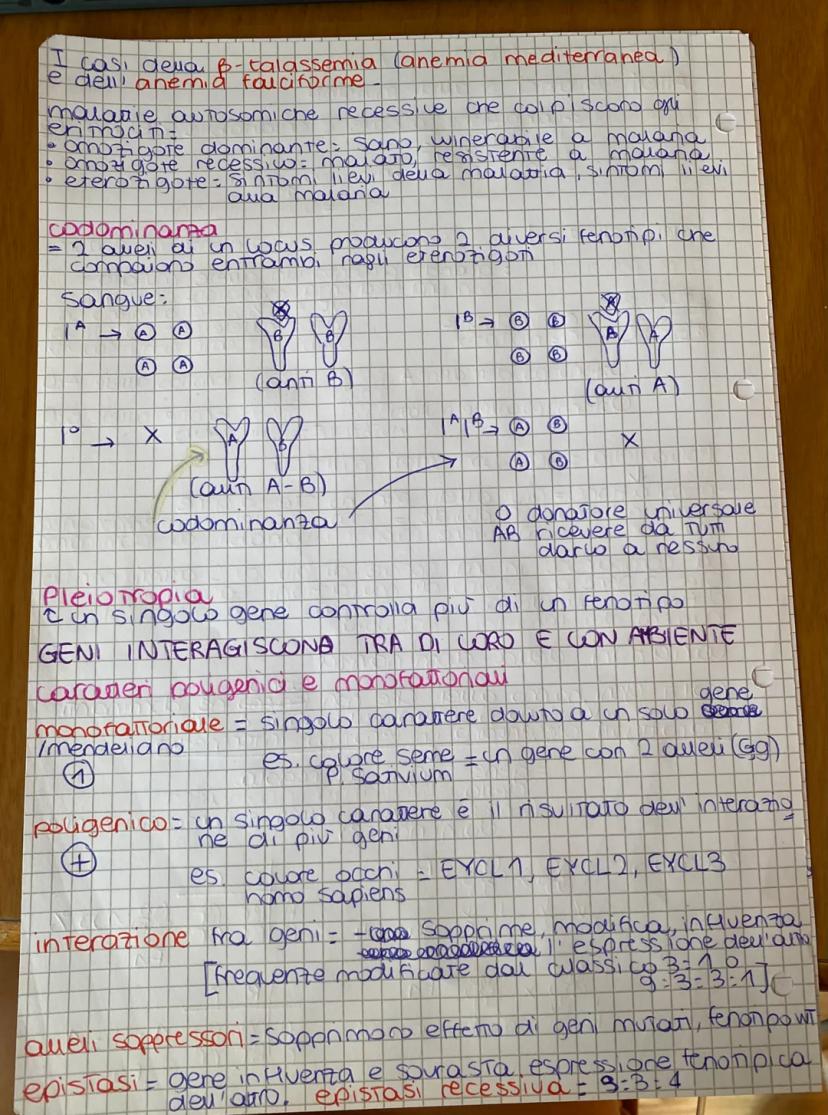 I casi della β-talassemia (anemia mediterranea)
e dell'anemia falciforme -
malattie autosomiche recessive che colpiscono gli
eritrociti:
• omozigote dominante: sano, vulnerabile a malaria
• omozigote recessivo: malato, resistente a malaria
• eterozigote: sintomi lievi della malattia, sintomi lievi
alla malaria
codominanza
= 2 alleli di un locus producono 2 diversi fenotipi che
compaiono entrambi negli eterozigoti
sangue:
I^A → A A B B
A A
(anti B)
I^B → B B A A
B B
(anti A)
I^0 → X A B
(anti A-B)
I^A I^B → A B X
A B
codominanza
O donatore universale
AB ricevere da tutti
darlo a nessuno
Pleiotropia
= un singolo gene controlla più di un fenotipo
GENI INTERAGISCONO TRA DI LORO E CON AMBIENTE
caratteri poligenici e monofattoriali
monofattoriale = singolo carattere dovuto a un solo gene
/mendeliano
1
es. colore seme = un gene con 2 alleli (Gg)
P. sativium
poligenico = un singolo carattere è il risultato dell'interazio
ne di più geni
+
es. colore occhi = EYCL1, EYCL2, EYCL3
homo sapiens
interazione fra geni = sopprime, modifica, influenza
l'espressione dell'altro
[frequenze modificate dal classico 3:1 o
9:3:3:1]
alleli soppressori = sopprimono effetto di geni mutati, fenotipo WT
epistasi = gene influenza e sovrasta espressione fenotipica
dell'altro. epistasi recessiva = 9:3:4